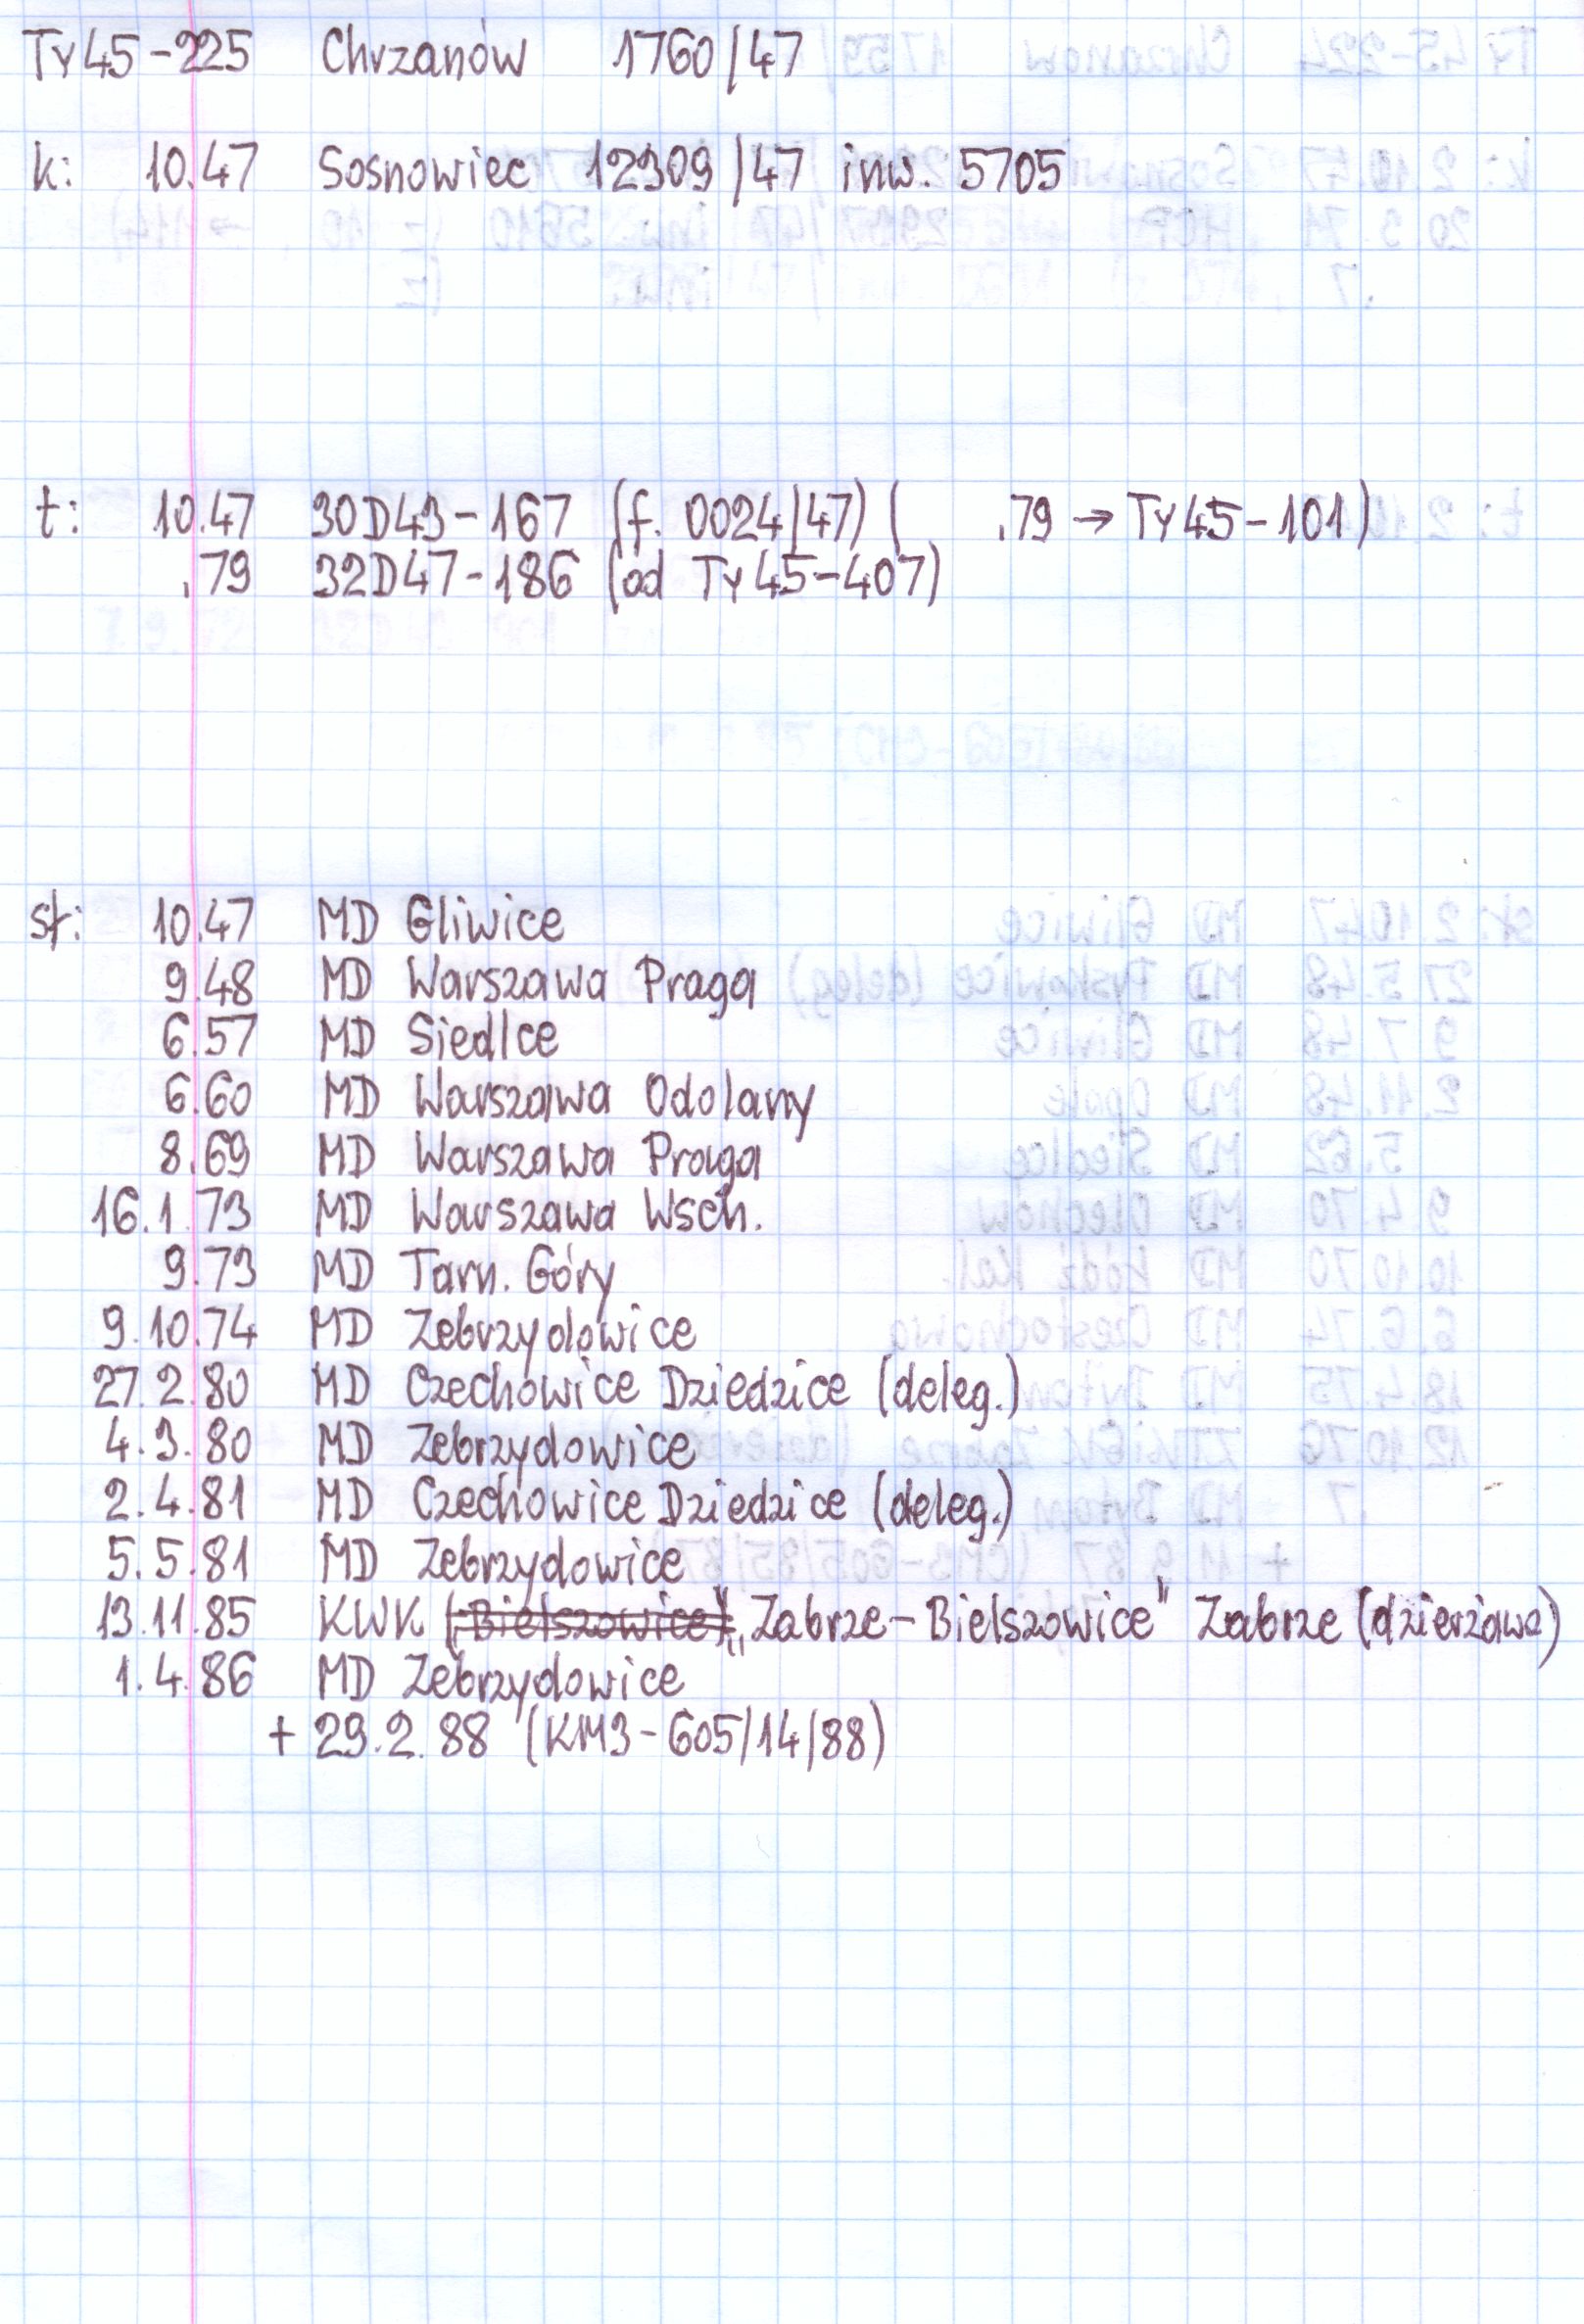 Ty45-225 Chrzanów 1760/47
k: 10.47 Sosnowiec 12309/47 inw. 5705
t: 10.47 30D43-167 (f. 0024/47) ( .79 → Ty45-101)
.79 32D47-186 (od Ty45-407)
st: 10.47 MD Gliwice
9.48 MD Warszawa Praga
6.57 MD Siedlce
6.60 MD Warszawa Odolany
8.69 MD Warszawa Praga
16.1.73 MD Warszawa Wsch.
9.73 MD Tarn. Góry
9.10.74 MD Zebrzydowice
27.2.80 MD Czechowice Dziedzice (deleg.)
4.3.80 MD Zebrzydowice
2.4.81 MD Czechowice Dziedzice (deleg.)
5.5.81 MD Zebrzydowice
13.11.85 KWK („Bielszowice”) „Zabrze-Bielszowice" Zabrze (dzierżawa)
1.4.86 MD Zebrzydowice
+ 29.2.88 (KM3-605/14/88)